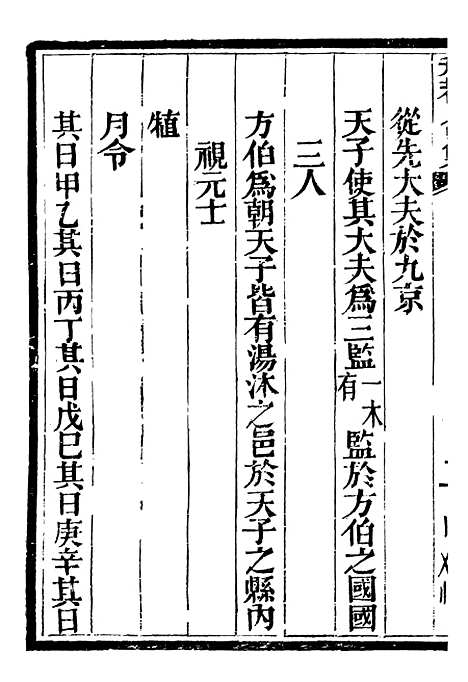 從先大夫於九京
天子使其大夫爲三監一本有監於方伯之國國
三人
方伯爲朝天子皆有湯沐之邑於天子之縣內
視元士
犆
月令
其日甲乙其日丙丁其日戊巳其日庚辛其日